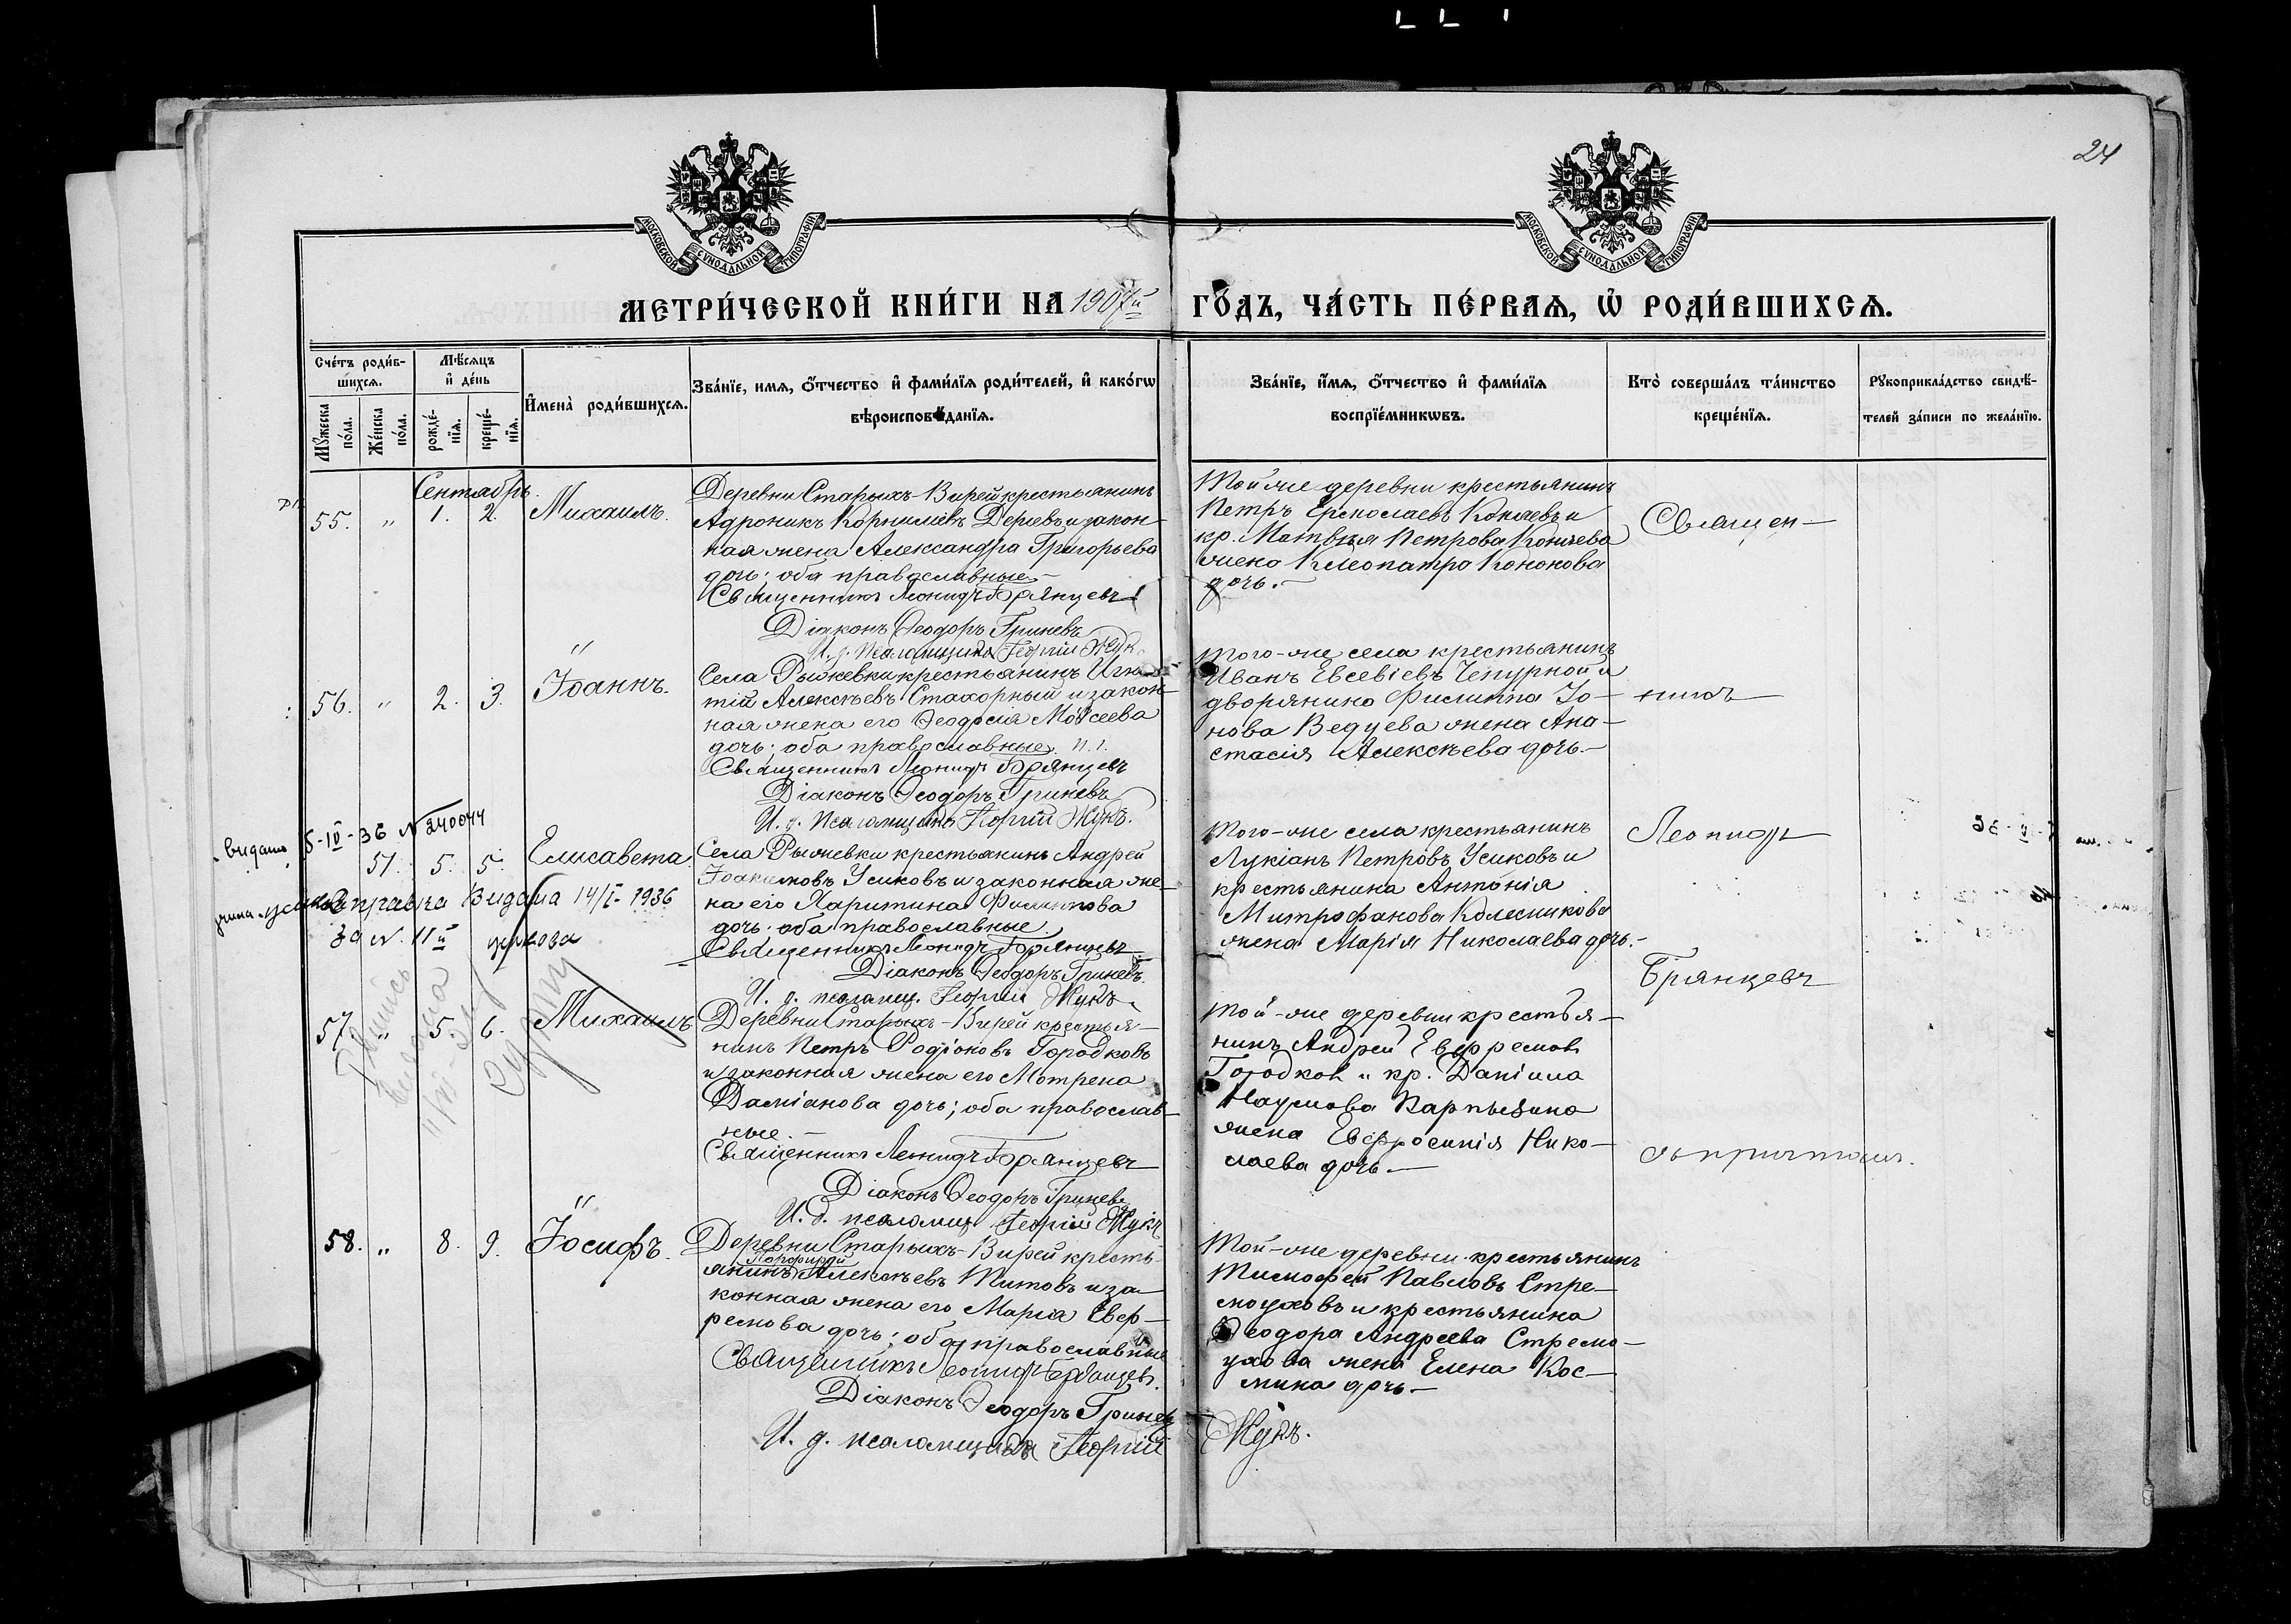 24
МОСКОВСКОЙ СѴНОДАЛЬНОЙ ТИПОГРАФІИ
МОСКОВСКОЙ СѴНОДАЛЬНОЙ ТИПОГРАФІИ
МЕТРИ́ЧЕСКОЙ КНИ́ГИ НА 1907й ГО́ДЪ, ЧА́СТЬ ПЕ́РВАЯ, Ѡ҆ РОДИ́ВШИХСЯ.
Сче́тъ роди́в-
шихся.
Мꙋ́жеска по́ла.
Же́нска по́ла.
Мѣ́сяцъ и҆ де́нь
рожде́-нїя.
креще́-нїя.
И҆мена̀ роди́вшихся.
Зва́нїе, имя, ѻ҆́тчество и҆ фами́лїя роди́телей, и҆ како́гѡ
вѣроисповѣ́данїя.
Зва́нїе, и҆́мя, ѻ҆́тчество и҆ фами́лїя
воспрїе́мникѡвъ.
Кто̀ соверша́лъ та́инство
креще́нїя.
Рꙋкоприкла́дство свидѣ́-
телей за́писи по жела́нїю.
Сентябрь.
55. " 1. 2. Михаилъ.
Деревни Старыхъ-Вирей крестьянинъ
Адроникъ Корниліевъ Деревъ и закон-
ная жена Александра Григорьева
дочь; оба православные.
Священникъ Леонидъ Брянцевъ
Діаконъ Ѳеодоръ Гриневъ
И. д. псаломщика Георгій Жук
Той-же деревни крестьянинъ
Петръ Конаевъ и
кр. Матвѣя Петрова Конаева
жена Клеопатра Кононова
дочь.
Священ-
56. " 2. 3. Іоаннъ.
Села Рыжевки крестьянинъ Игна
тій Алексѣевъ Стахорный и закон-
ная жена его Ѳеодосія Моѵсеева
дочь; оба православные.
Священникъ Леонидъ Брянцевъ
Діаконъ Ѳеодоръ Гриневъ
И. д. псаломщика Георгій Жукъ.
Того-же села крестьянинъ
Иванъ Евсевіевъ Чепурной и
дворянина Филиппа Іо-
нова Ведуева жена Ана-
стасія Алексѣева дочь.
никъ
видано 5-IV-36 N 240044
51. 5. 5. Елисавета.
Видана 14/I-1936
Села Рыжевки крестьянинъ Андрей
Іоакимовъ Усиковъ и законная же-
на его Харитина Филиппова
дочь; оба православные.
Священникъ Леонидъ Брянцевъ
Діаконъ Ѳеодоръ Гриневъ.
И. д. псаломщ. Георгій Жукъ.
Того-же села крестьянинъ
Лукіанъ Петровъ Усиковъ и
крестьянина Антонія
Митрофанова Колесникова
жена Марія Николаева дочь.
Леонидъ
Брянцевъ
57. " 5. 6. Михаилъ
Деревни Старыхъ-Вирей крестья-
нинъ Петръ Родіоновъ Городковъ
и законная жена его Мотрена
Даміанова дочь; оба православ-
ные.
Священникъ Леонидъ Брянцевъ
Діаконъ Ѳеодоръ Гриневъ
И. д. псаломщ. Георгій Жукъ
Той-же деревни крестья-
нинъ Андрей Евфремов
Городков и кр. Даніила
Наумова
жена Евфросинія Нико-
лаева дочь.
съ причтомъ.
58. " 8. 9. Іосифъ.
Деревни Старыхъ-Вирей кресть-
Порфирій
янинъ Алексѣевъ Титовъ и за-
конная жена его Марія Евф-
ремова дочь; оба православные
Священникъ Леонидъ Брянцевъ.
Діаконъ Ѳеодоръ Гриневъ
И. д. псаломщика Георгій Жукъ.
Той-же деревни крестьянинъ
Тимофей Павловъ Стре-
моуховъ и крестьянина
Ѳеодора Андреева Стремо-
ухова жена Елена Кос-
мина дочь.